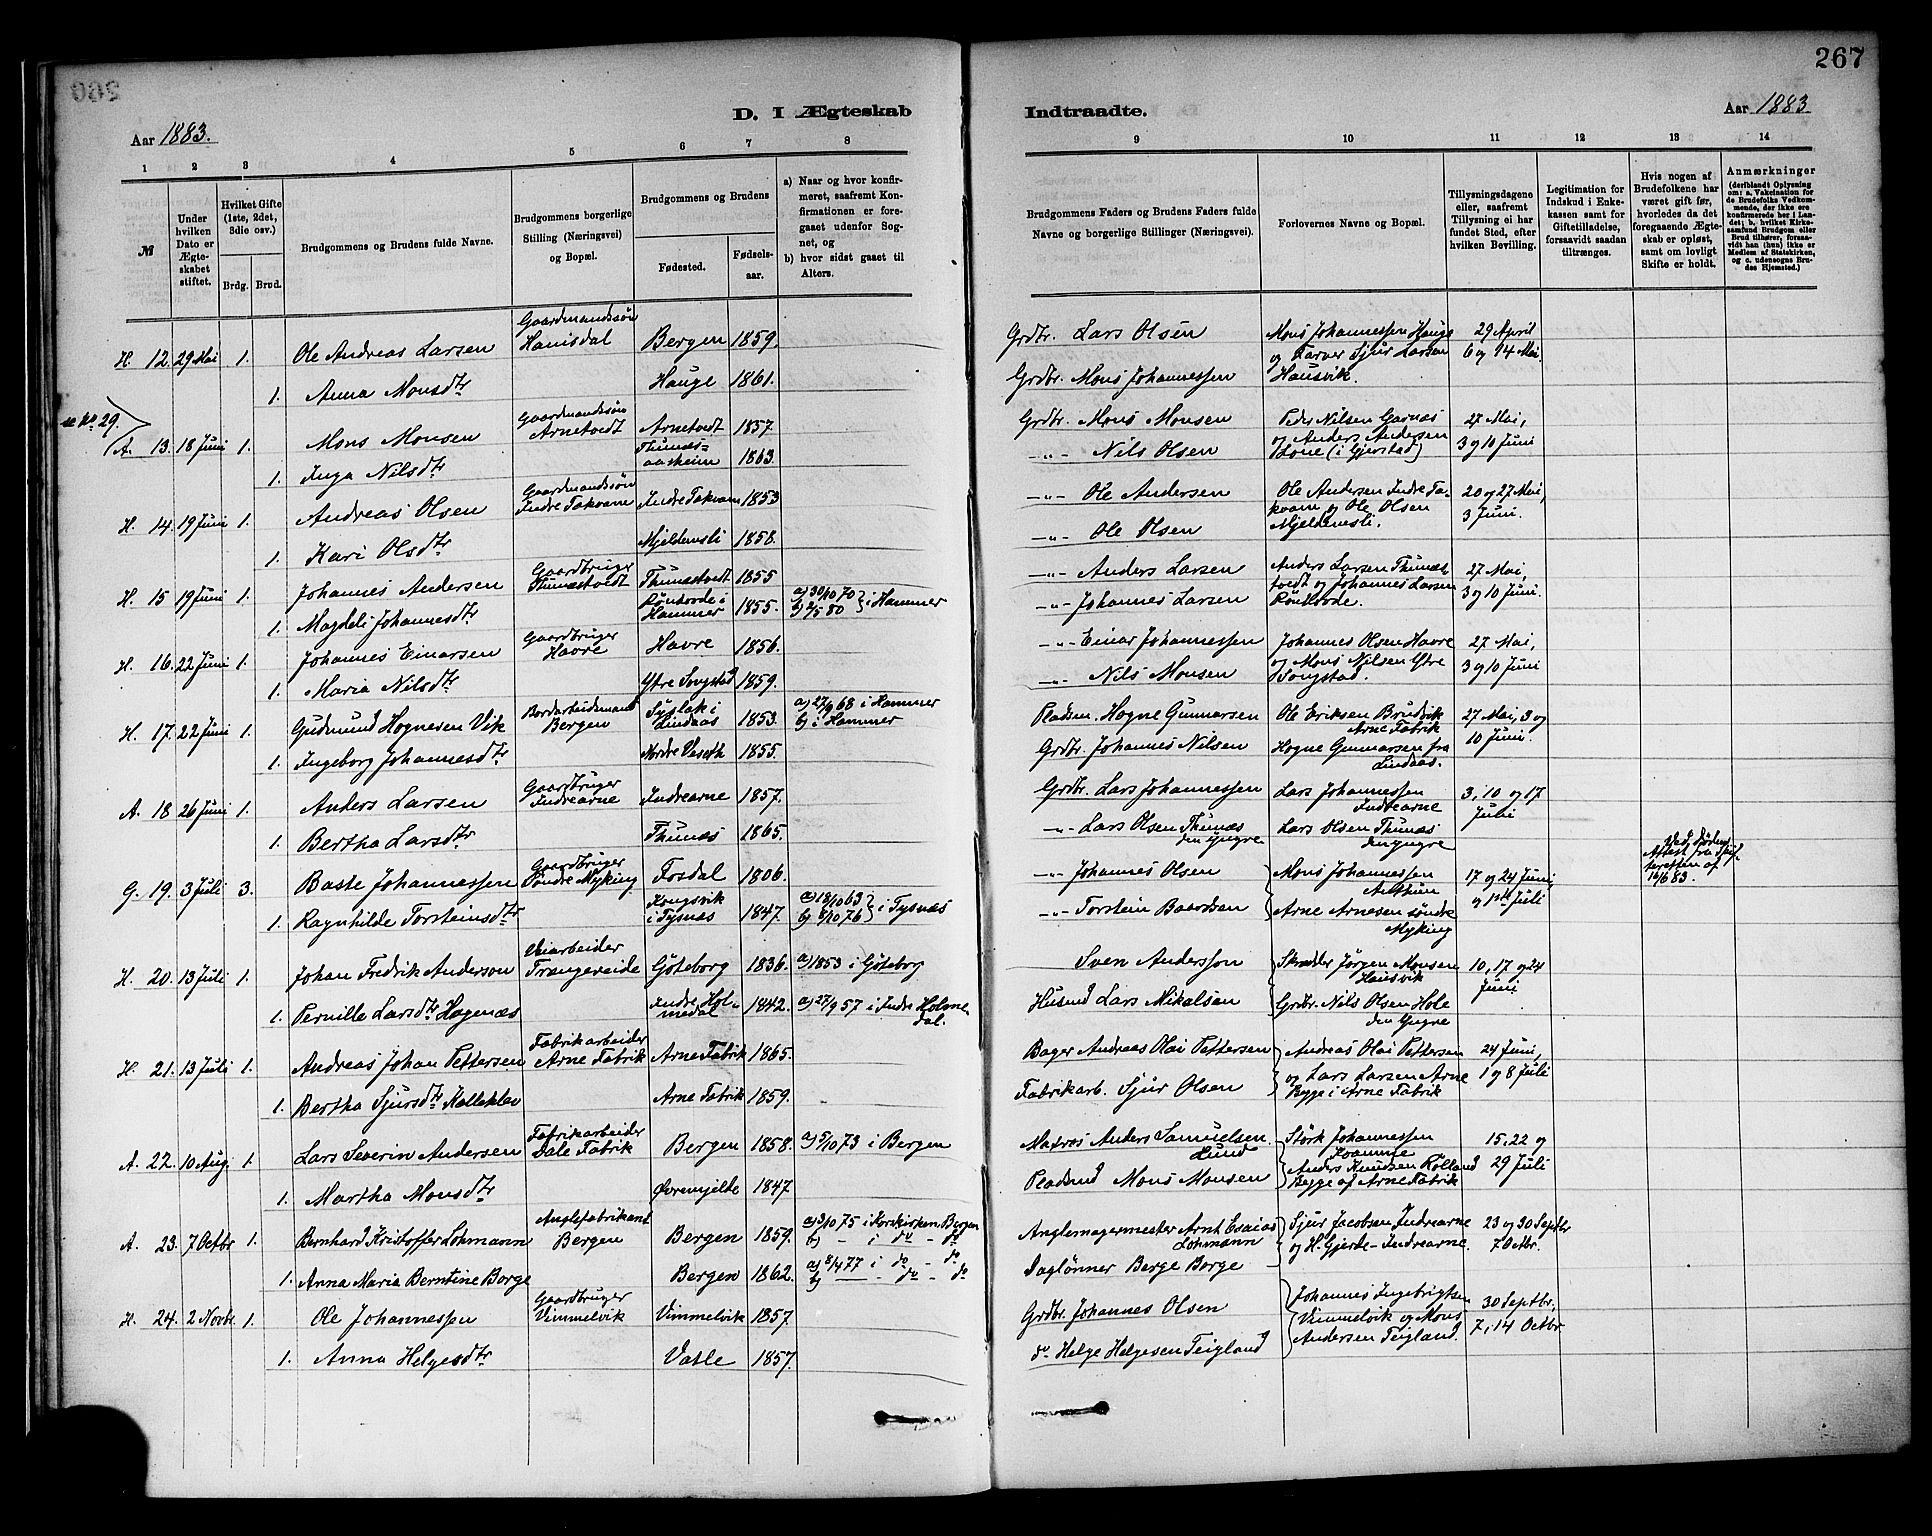 267
D. I Ægteskab Indtraadte.
Aar 1883.
Aar 1883
1 2 3 4 5 6 7 8 9 10 11 12 13 14
№
Under hvilken Dato er Ægteskabet stiftet.
Hvilket Gifte (1ste, 2det, 3die osv.)
Brdg. Brud.
Brudgommens og Brudens fulde Navne.
Brudgommens borgerlige Stilling (Næringsvei) og Bopæl.
Brudgommens og Brudens
Fødested.
Fødselsaar.
a) Naar og hvor konfirmeret, saafremt Konfirmationen er foregaaet udenfor Sognet, og
b) hvor sidst gaaet til Alters.
Brudgommens Faders og Brudens Faders fulde Navne og borgerlige Stillinger (Næringsvei).
Forlovernes Navne og Bopæl.
Tillysningsdagene eller, saafremt Tillysning ei har fundet Sted, efter hvilken Bevilling.
Legitimation for Indskud i Enkekassen samt for Giftetilladelse, forsaavidt saadan tiltrænges.
Hvis nogen af Brudefolkene har været gift før, hvorledes da det foregaaende Ægteskab er opløst, samt om lovligt Skifte er holdt.
Anmærkninger
(deriblandt Oplysning om: a. Vakcination for de Brudefolks Vedkommende, der ikke ere konfirmerede her i Landet; b. hvilket Kirkesamfund Brudgom eller Brud tilhører, forsaavidt han (hun) ikke er Medlem af Statskirken, og c. udensogns Brudes Hjemsted.)
H. 12. 29 Mai 1. Ole Andreas Larsen Gaardmandssøn Hausdal Bergen 1859. Grdbr. Lars Olsen Mons Johannessen Hauge og Farver Sjur Larsen Hausvik. 29 April 6 og 14 Mai.
1. Anna Monsdtr Hauge 1861. Grdbr. Mons Johannessen
No. 29.
A. 13. 18 Juni 1. Mons Monsen Gaardmandssøn Arnetvedt Arnetvedt 1857. Grdbr. Mons Monsen Peder Nilsen Garnæs og Anders Andersen Lone (i Gjerstad) 27 Mai, 3 og 10 Juni
1. Inga Nilsdtr Thunæsaasheim 1863. -"- Nils Olsen
H. 14. 19 Juni 1. Andreas Olsen Gaardmandssøn Indre Takvam Indre Takvam 1853 -"- Ole Andersen Ole Andersen Indre Takvam og Ole Olsen Mjeldemsli. 20 og 27 Mai, 3 Juni.
1. Kari Olsdtr Mjeldemsli 1858. -"- Ole Olsen
H. 15 19 Juni 1. Johannes Andersen Gaardbruger Thunæstvedt Thunæstvedt 1855 -"- Anders Larsen Anders Larsen Thunæstvedt og Johannes Larsen 27 Mai, 3 og 10 Juni.
1. Magdeli Johannesdtr Hammer 1855. a) 30/10 70 b) 2/5 80 } i Hammer -"- Johannes Larsen
H. 16. 22 Juni 1. Johannes Einarsen Gaardbruger Havre Havre 1856. -"- Einar Johannessen Johannes Olsen Havre og Mons Nilsen Ytre Songstad. 27 Mai, 3 og 10 Juni
1. Maria Nilsdtr Ytre Songstad 1859. -"- Nils Monsen
H. 17. 22 Juni 1. Gudmund Hognesen Vik Bordarbeidsmand Bergen Lindaas 1853. a) 27/9 68 i Hammer b) i Hammer Pladsm. Hogne Gunnarsen Ole Eriksen Brudvik Arne Fabrik Hogne Gunnarsen fra Lindaas. 27 Mai, 3 og 10 Juni.
1. Ingeborg Johannesdtr Nordre Veseth 1855. Grdbr. Johannes Nilsen
A. 18 26 Juni 1. Anders Larsen Gaardbruger Indrearne Indrearne 1857. Grdbr. Lars Johannessen Lars Johannessen Indrearne 3, 10 og 17 Juli
1. Bertha Larsdtr Thunæs 1865. -"- Lars Olsen Thunæs den yngre Lars Olsen Thunæs den yngre
G. 19. 3 Juli 3. Baste Johannessen Gaardbruger Søndre Myking Fosdal 1806. -"- Johannes Olsen Mons Johannessen Arne Arnesen søndre Myking 17 og 24 Juni og 1ste Juli Ved Døden, Attest fra Skifteretten af 16/6 83.
1. Ragnhilde Torsteinsdtr i Tysnæs 1847. a) 18/10 63 b) 8/10 76 } i Tysnæs -"- Torstein Baardsen
H. 20. 13 Juli 1. Johan Fredrik Anderson Veiarbeider Trængereide Göteborg 1836. a) 1853 i Göteborg Sven Andersson Skrædder Jörgen Monsen Hausvik Grdbr. Nils Olsen Hole den yngre 10, 17 og 24 Juni
1. Pernille Larsdtr Hagenæs Indre Holmedal 1842. a) 27/9 57 i Indre Holmedal. Husmd Lars Mikalsen
H. 21. 13 Juli 1. Andreas Johan Pettersen Fabrikarbeider Arne Fabrik Arne Fabrik 1865. Bager Andreas Olai Pettersen Andreas Olai Pettersen og Lars Larsen Arne Begge i Arne Fabrik 24 Juni, 1 og 8 Juli
1. Bertha Sjursdtr Kalleklev Arne Fabrik 1859. Fabrikarb. Sjur Olsen
A. 22. 10 Aug. 1. Lars Severin Andersen Fabrikarbeider Dale Fabrik Bergen 1858. a) 5/10 73 i Bergen Matros Anders Samuelsen Lund Störk Johannessen Anders Knudsen Rølland Begge af Arne Fabrik 15, 22 og 29 Juli
1. Martha Monsdtr Øvremjelde 1847 Pladsmd Mons Monsen
A. 23. 7 Octbr 1. Bernhard Kristoffer Lohmann Anglefabrikant Bergen Bergen 1859. a) 3/10 75 i Korskirken Bergen b) - i do - do Anglemagermester Arnt Esaias Lohmann Sjur Jacobsen Indrearne og H. Gjerde - Indrearne. 23 og 30 Septbr 7 Octbr.
1. Anna Maria Berntine Borge Bergen 1862. a) 8/4 77 i do - do b) - - do - do Dagløner Berge Borge
H. 24. 2 Novbr. 1. Ole Johannessen Gaardbruger Vimmelvik Vimmelvik 1857. Grdbr. Johannes Olsen Johannes Ingebrigtsen Vimmelvik og Mons Andersen Teigland. 30 Septbr, 7, 14 Octbr.
1. Anna Helgesdtr Vatle 1857. do Helge Helgesen Teigland